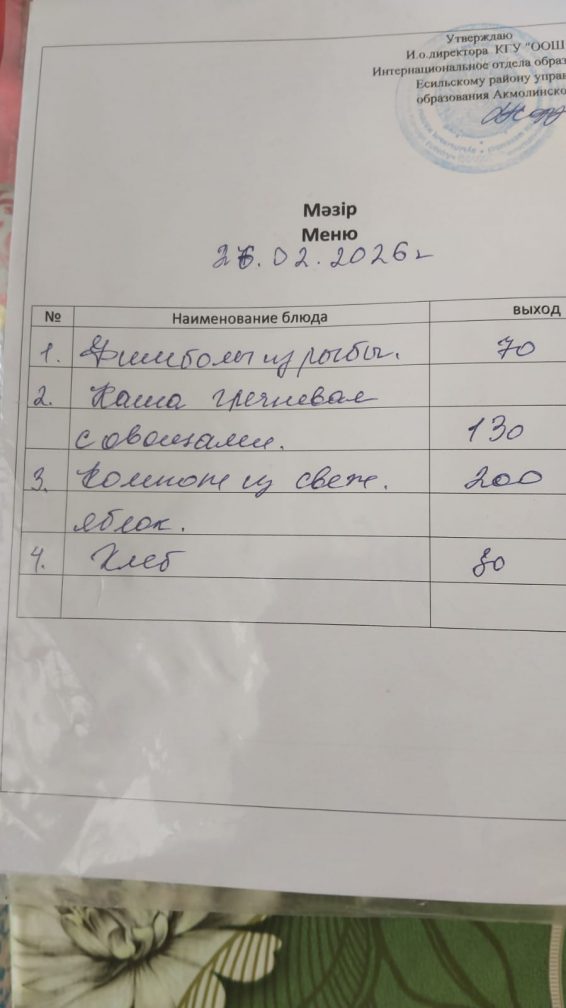 Утверждаю
И.о.директора КГУ "ООШ
Интернациональное отдела образ
Есильскому району упра
образования Акмолинско
Мәзір
Меню
26.02.2026г
№ Наименование блюда выход
1. Фишболы из рыбы. 70
2. Каша гречневая
с овощами. 130
3. Компот из свеж. 200
яблок.
4. Хлеб 80